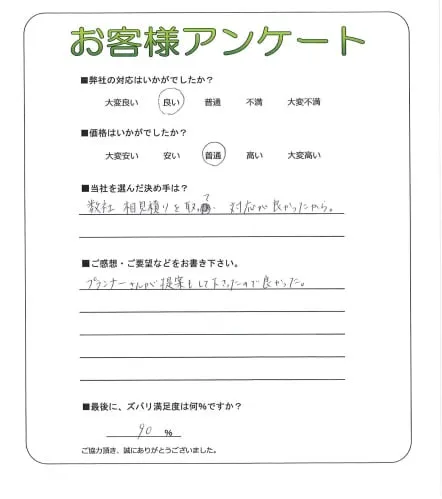 お客様アンケート
■弊社の対応はいかがでしたか？
大変良い 良い 普通 不満 大変不満
■価格はいかがでしたか？
大変安い 安い 普通 高い 大変高い
■当社を選んだ決め手は？
数社 相見積りを取って、対応が良かったから。
■ご感想・ご要望などをお書き下さい。
プランナーさんが提案もして下さったので良かった。
■最後に、ズバリ満足度は何％ですか？
90 ％
ご協力頂き、誠にありがとうございました。